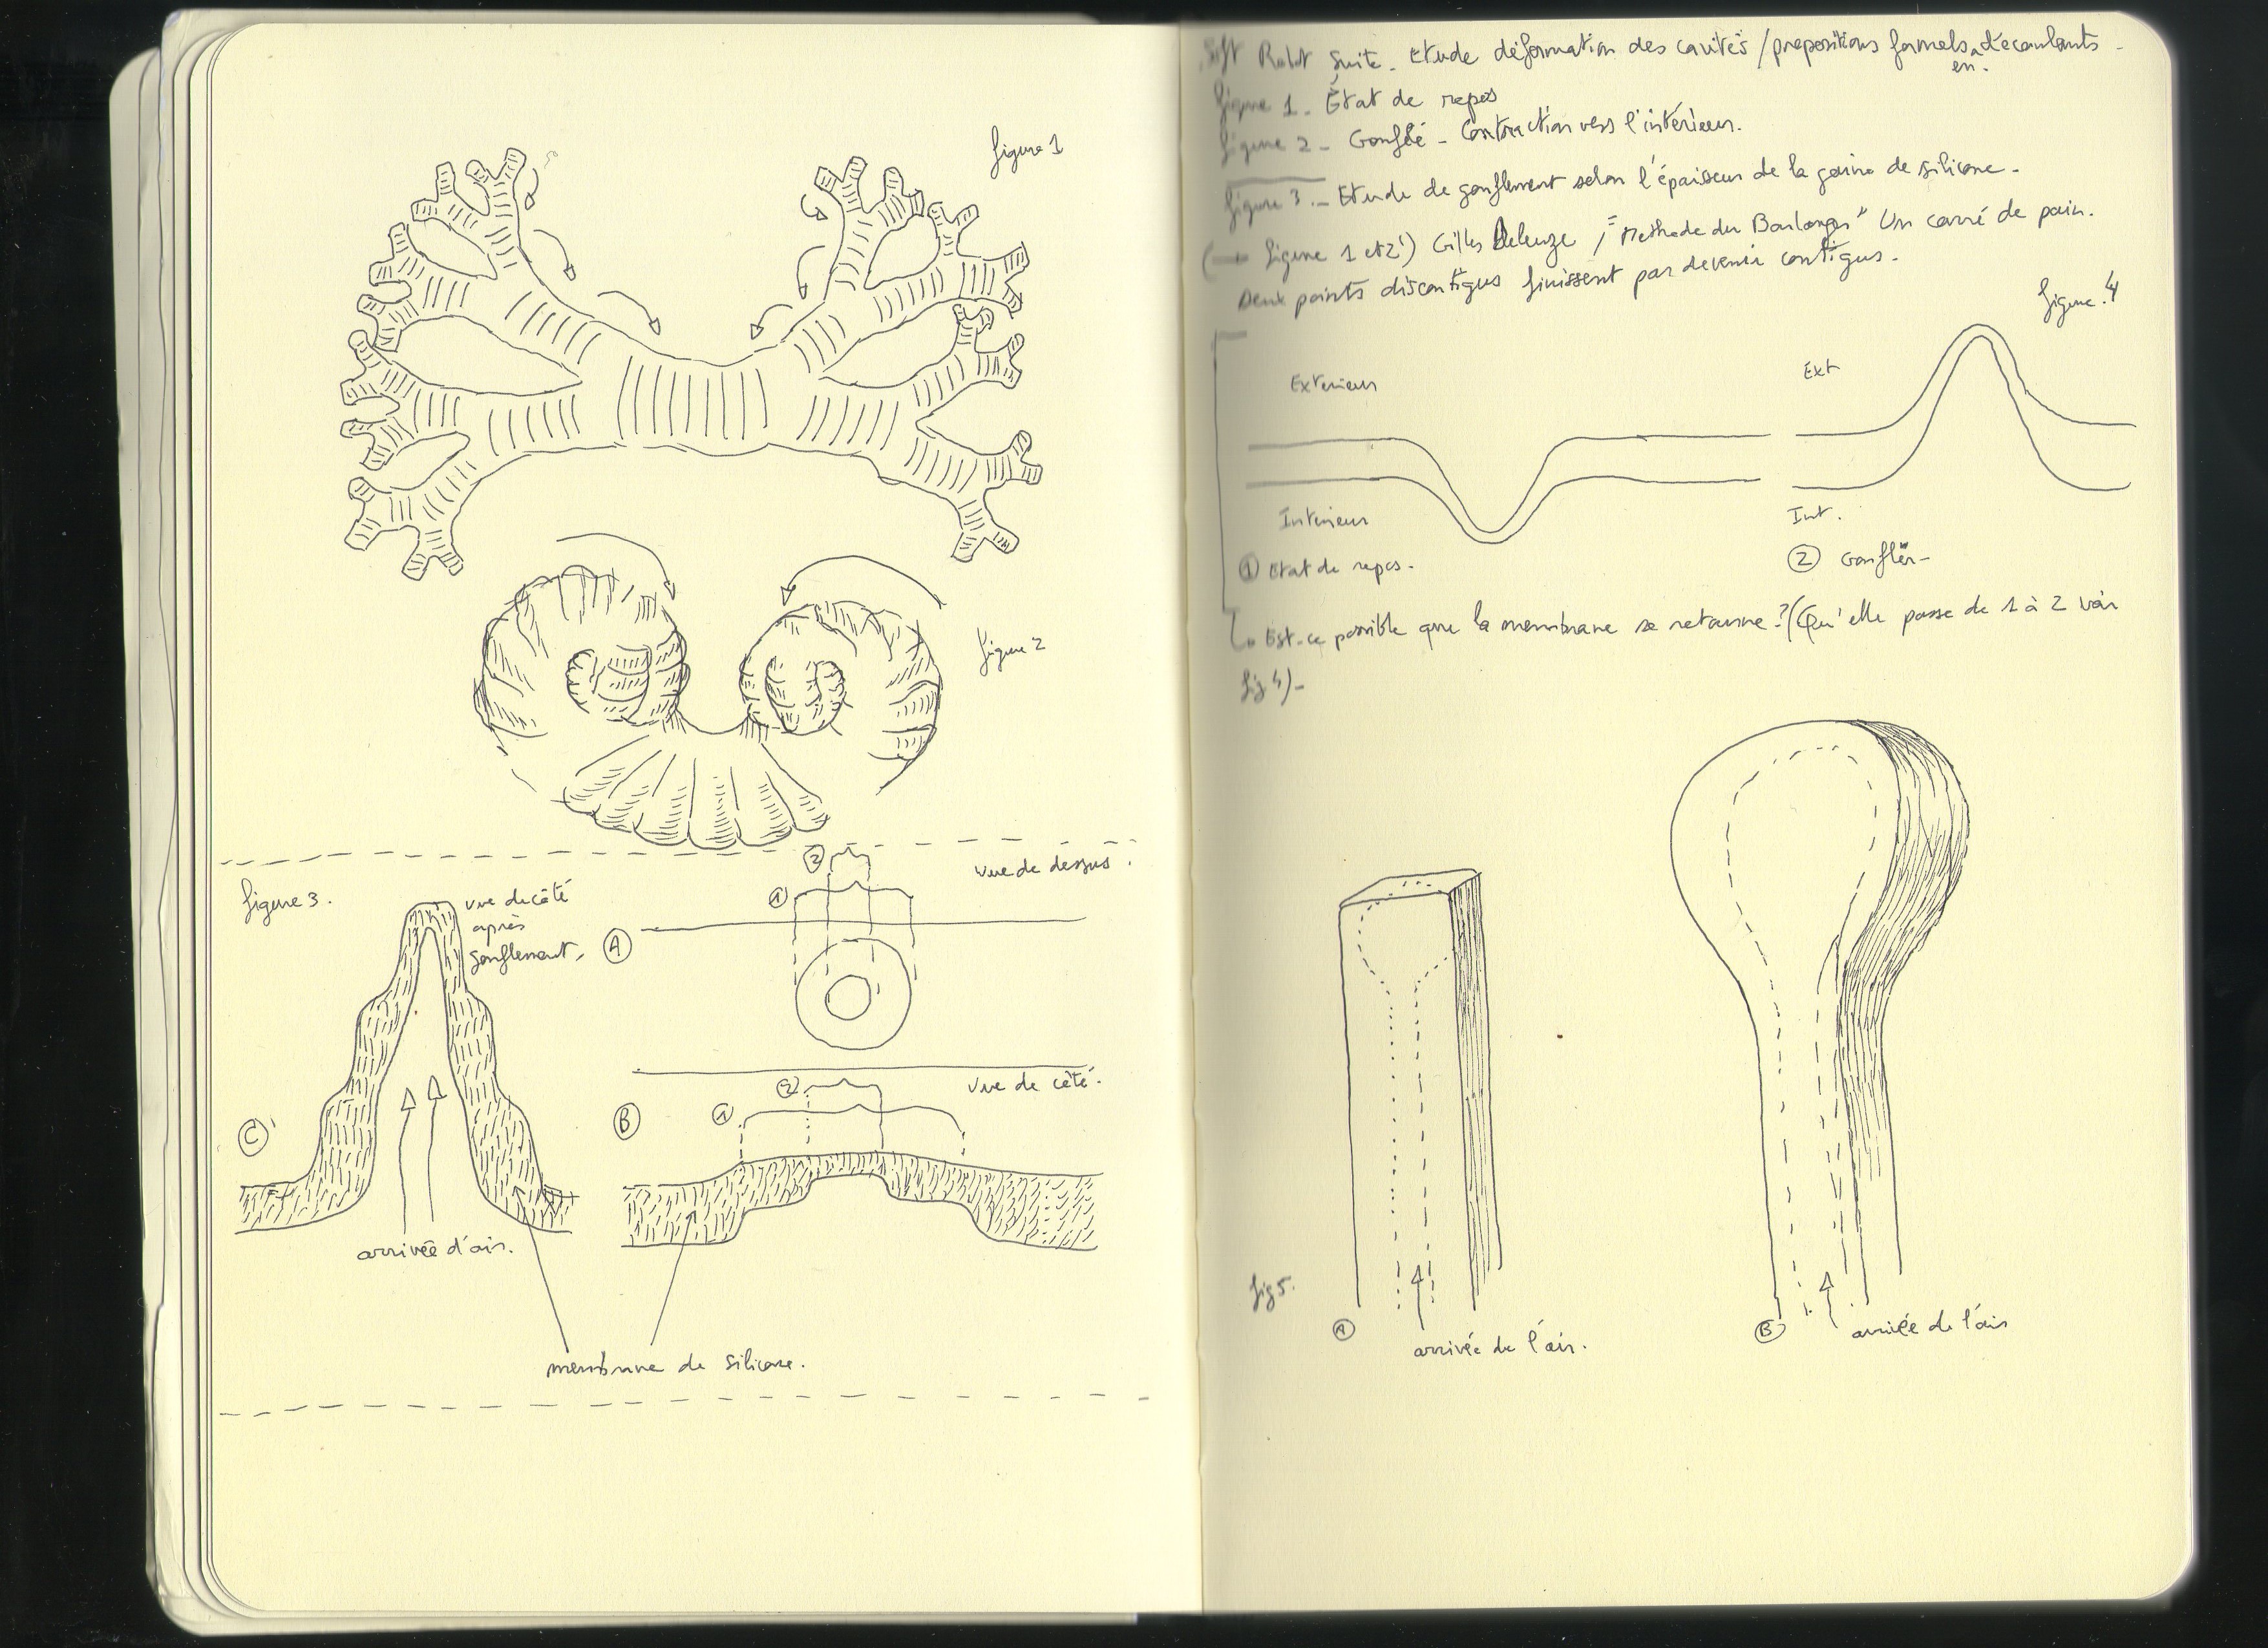 figure 1
figure 2
vue de dessus.
figure 3.
vue de côté
après
gonflement.
2
1
A
vue de côté.
2
1
B
C
arrivée d'air.
membrane de silicone.
Soft Robot suite. Etude déformation des cavités / propositions formels en découlants -
figure 1 - État de repos
figure 2 - Gonflé - Contraction vers l'intérieur.
figure 3 - Etude de gonflement selon l'épaisseur de la gaine de silicone -
(→ figure 1 et 2) Gilles Deleuze, "Methode du Boulanger" Un carré de pain.
Deux points discontigus finissent par devenir contigus.
figure 4
Exterieur
Ext
Interieur
Int.
1 Etat de repos.
2 Gonfler -
Est-ce possible que la membrane se retourne ? (Qu'elle passe de 1 à 2 voir
fig 4) -
fig 5.
A
arrivée de l'air.
B
arrivée de l'air